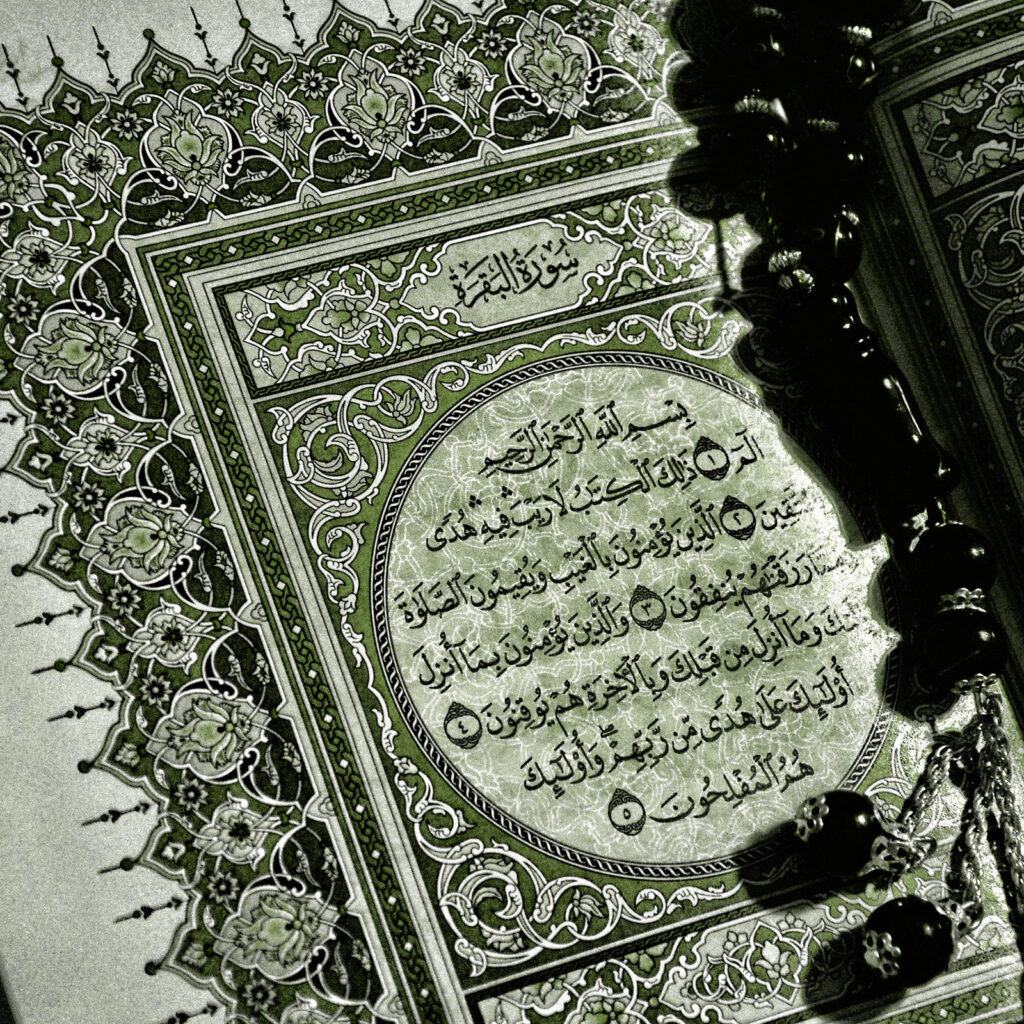 سُورَةُ البَقَرَةِ
بِسْمِ ٱللَّهِ ٱلرَّحْمَٰنِ ٱلرَّحِيمِ
الٓمٓ ١ ذَٰلِكَ ٱلْكِتَٰبُ لَا رَيْبَ ۛ فِيهِ ۛ هُدًى
ٱلَّذِينَ يُؤْمِنُونَ بِٱلْغَيْبِ وَيُقِيمُونَ ٱلصَّلَوٰةَ ٢
رَزَقْنَٰهُمْ يُنفِقُونَ ٣ وَٱلَّذِينَ يُؤْمِنُونَ بِمَآ أُنزِلَ
وَمَآ أُنزِلَ مِن قَبْلِكَ وَبِٱلْءَاخِرَةِ هُمْ يُوقِنُونَ ٤
أُو۟لَٰٓئِكَ عَلَىٰ هُدًى مِّن رَّبِّهِمْ ۖ وَأُو۟لَٰٓئِكَ
هُمُ ٱلْمُفْلِحُونَ ٥